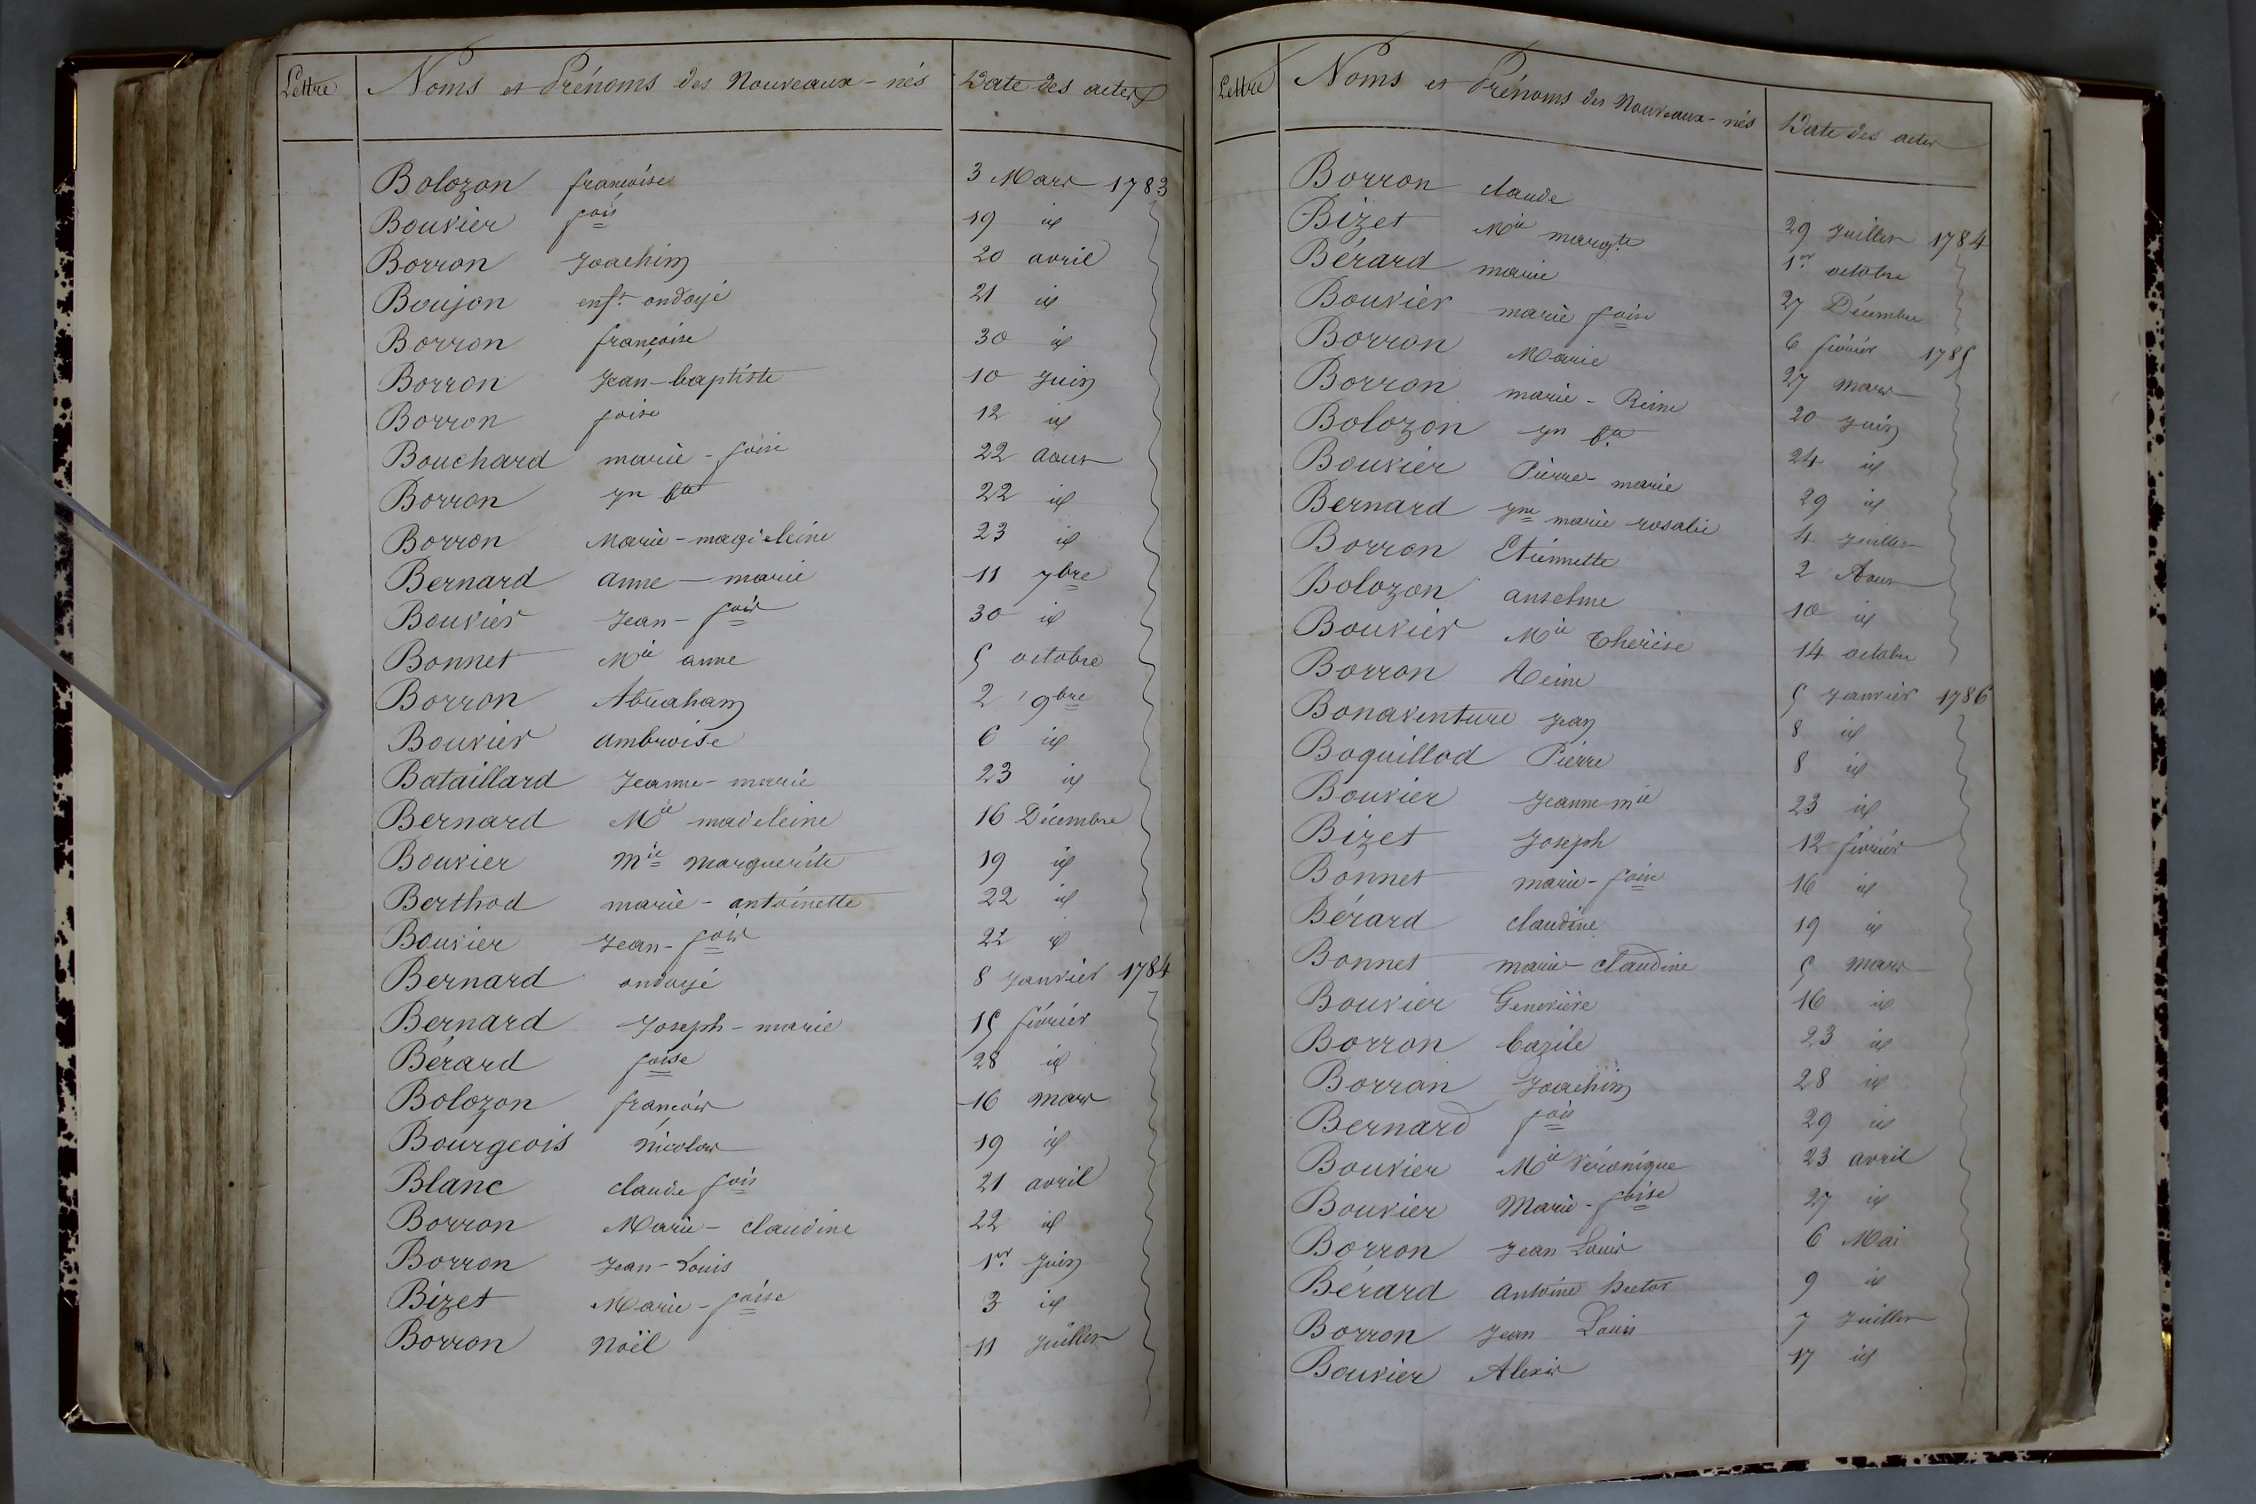 Lettre Noms et Prénoms des Nouveaux-nés Date des actes
Bolozon françoise 3 Mars 1783
Bouvier fois 19 id
Borron Joachim 20 avril
Boujon enft ondoyé 21 id
Borron françoise 30 id
Borron Jean-baptiste 10 Juin
Borron foise 12 id
Bouchard marie-foise 22 aout
Borron Jn bte 22 id
Borron Marie-magdeleine 23 id
Bernard anne-marie 11 7bre
Bouvier Jean-fois 30 id
Bonnet Mie anne 5 octobre
Borron Abraham 2 9bre
Bouvier ambroise 6 id
Bataillard Jeanne-marie 23 id
Bernard Mie madeleine 16 Décembre
Bouvier Mie Marguerite 19 id
Berthod marie-antoinette 22 id
Bouvier Jean-fois 22 id
Bernard ondoyé 8 Janvier 1784
Bernard Joseph-marie 15 février
Bérard foise 28 id
Bolozon françois 16 mars
Bourgeois Nicolas 19 id
Blanc claude fois 21 avril
Borron Marie-claudine 22 id
Borron Jean-Louis 1er Juin
Bizet Marie-foise 3 id
Borron Noël 11 Juillet
Lettre Noms et Prénoms des Nouveaux-nés Date des actes
Borron claude 29 Juillet 1784
Bizet Mie margte 1er octobre
Bérard marie 27 Décembre
Bouvier marie foise 6 février 1785
Borron Marie 27 mars
Borron marie-Reine 20 Juin
Bolozon Jn bte 24 id
Bouvier Pierre-marie 29 id
Bernard Jne marie rosalie 4 Juillet
Borron Etiennette 2 Aout
Bolozon anselme 10 id
Bouvier Mie Thérèse 14 octobre
Borron Reine 5 Janvier 1786
Bonaventure Jean 8 id
Boquillod Pierre 8 id
Bouvier Jeanne mie 23 id
Bizet Joseph 12 février
Bonnet marie-foise 16 id
Bérard claudine 19 id
Bonnet marie-claudine 5 mars
Bouvier Geneviève 16 id
Borron bazile 23 id
Borron Joachim 28 id
Bernard fois 29 id
Bouvier Mie véronique 23 avril
Bouvier Marie-foise 27 id
Borron Jean Louis 6 Mai
Bérard antoine hector 9 id
Borron Jean Louis 7 Juillet
Bouvier Alexis 17 id